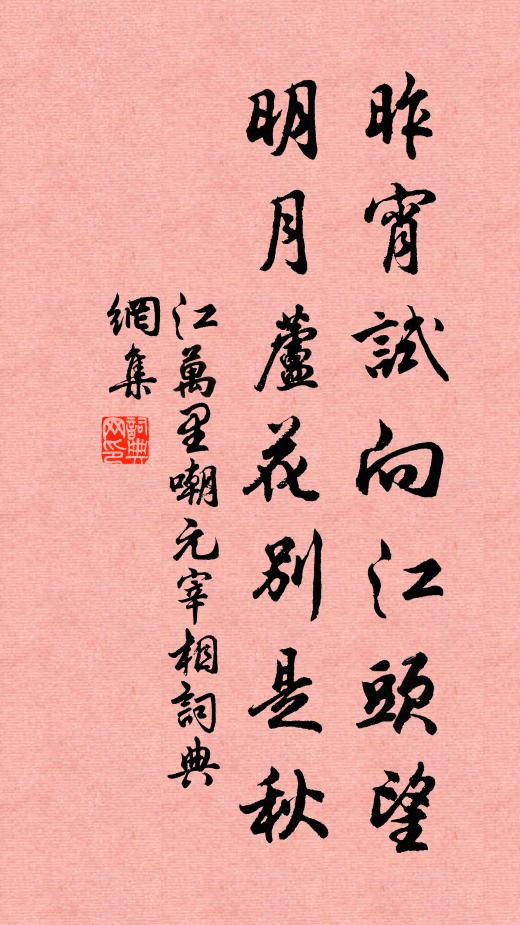 昨宵試向江頭望
明月蘆花別是秋
江萬里嘲元宰相詞典
網集
詞典網印